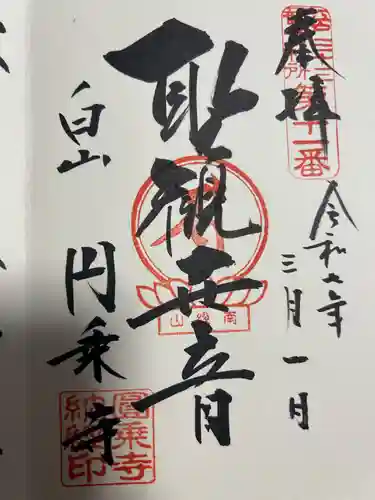 奉拝
第十一番
令和七年
三月一日
聖観世音
南縁山
白山
円乗寺
圓乗寺
納経印